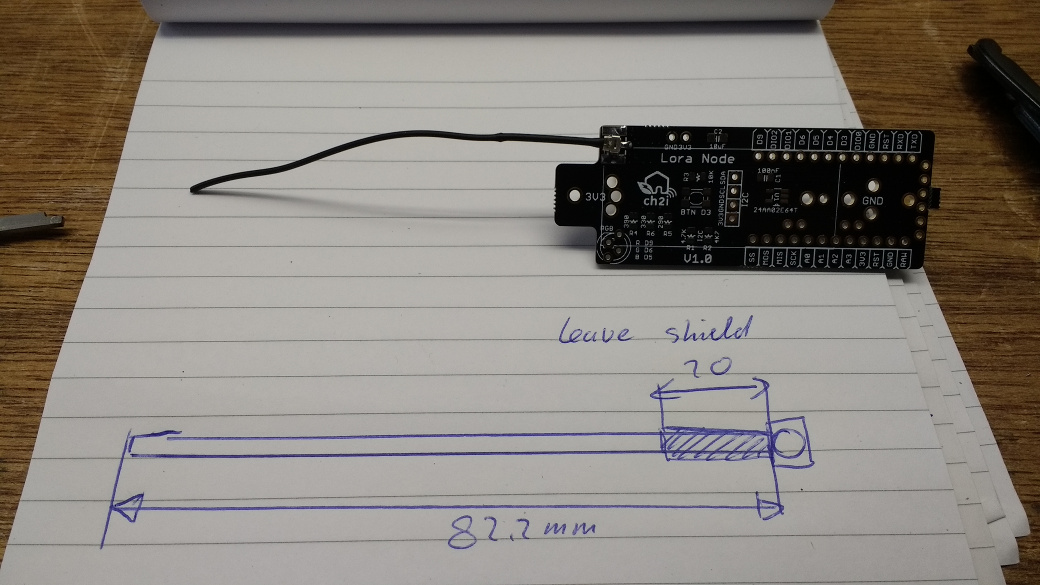 D9 DIO2 DIO1 D6 D5 D4 D3 DIO0 GND RST RXD TXD
GND 3V3
C2
10uF
Lora Node
100nF
C1
3V3
R3
10K
ch2i
3V3 GND SCL SDA
I2C
GND
BTN D3
24AA02E64T
330 330 290
R4 R6 R5
RGB
R D9
G D6
B D5
4.7K I2C 4K7
R1 R2
V1.0
SS MOS MIS SCK A0 A1 A2 A3 3V3 RST GND RAW
Leave shield
20
82.2mm